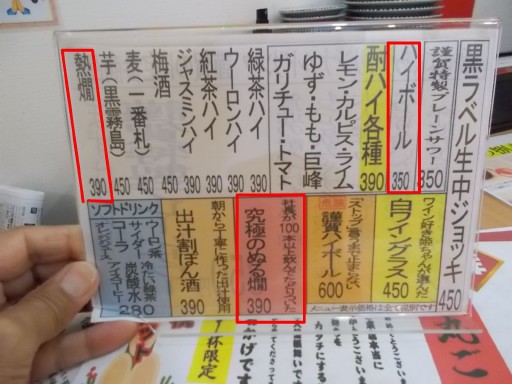 黒ラベル生中ジョッキ 450
謹賀特製プレーンサワー 350
ハイボール 350
酎ハイ各種 390
レモン・カルピス・ライム
ゆず・もも・巨峰
ガリチュー・トマト
緑茶ハイ 390
ウーロンハイ 390
紅茶ハイ 390
ジャスミンハイ 390
梅酒 450
麦(一番札) 450
芋(黒霧島) 450
熱燗 390
ワイン好き姫ちゃんが選んだ
白ワイングラス 450
謹賀ハイボール 600
社長が100本以上飲んだどりついた
究極のぬる燗 390
朝から丁寧に作った出汁使用
出汁割ぽん酒 390
ソフトドリンク
ウーロン茶
コーラ
サイダー
炭酸水
アイスコーヒー
280
メニュー表示価格は全て税別です
1杯限定